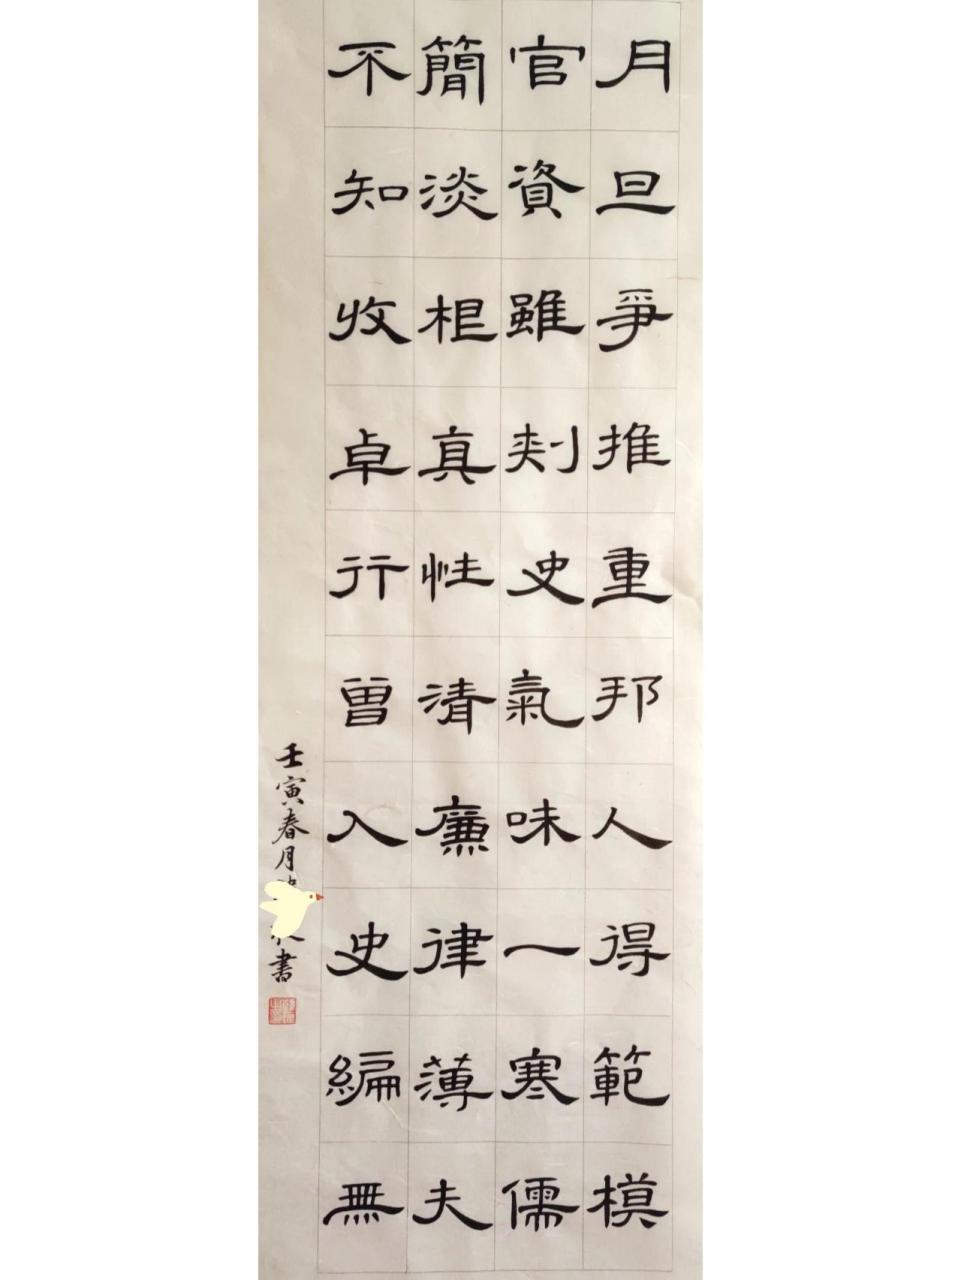 月旦爭推重邦人得範模
官資雖刾史氣味一寒儒
簡淡柤真性清廉律薄夫
不知收卓行曽入史編無
壬寅春月
書